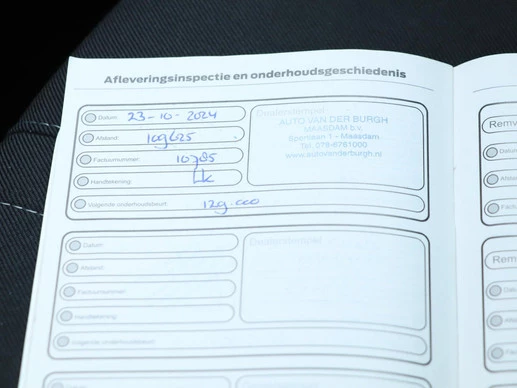 Afleveringsinspectie en onderhoudsgeschiedenis
Datum: 23-10-2024
Afstand: 109625
Factuurnummer: 10785
Handtekening:
Volgende onderhoudsbeurt: 129.000
Dealerstempel
AUTO VAN DER BURGH
MAASDAM b.v.
Sportlaan 1 - Maasdam
Tel. 078-6761000
Datum:
Afstand:
Factuurnummer:
Handtekening:
Volgende onderhoudsbeurt:
Dealerstempel
Remv
Datum
Afsta
Factu
Rem
Datu
Afst
Fact